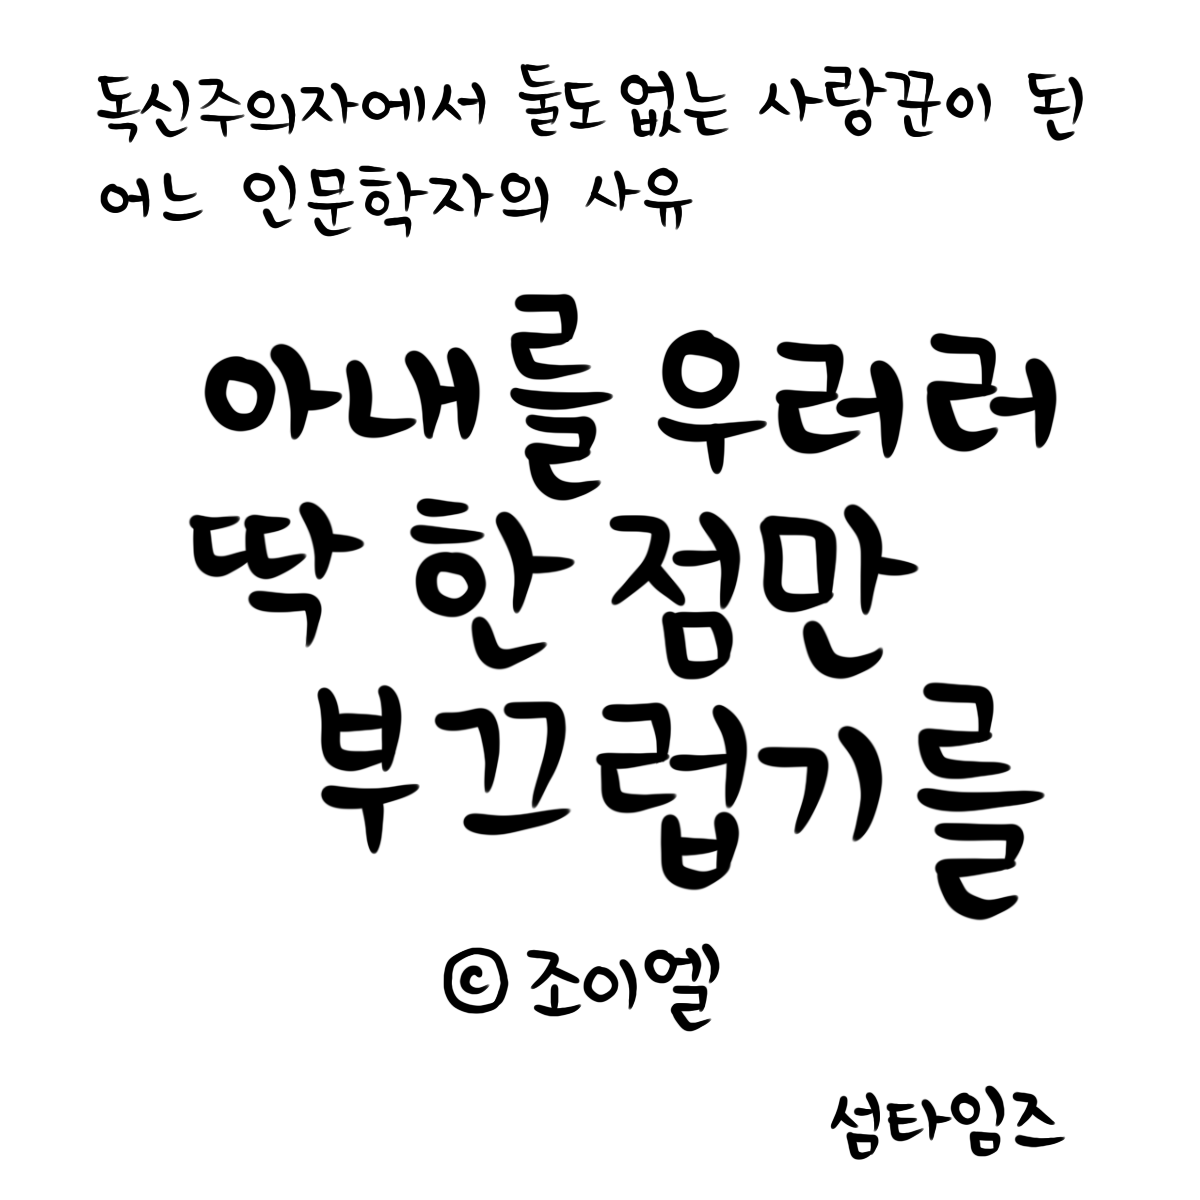 독신주의자에서 둘도 없는 사랑꾼이 된
어느 인문학자의 사유
아내를 우러러
딱 한 점만
부끄럽기를
© 조이엘
섬타임즈